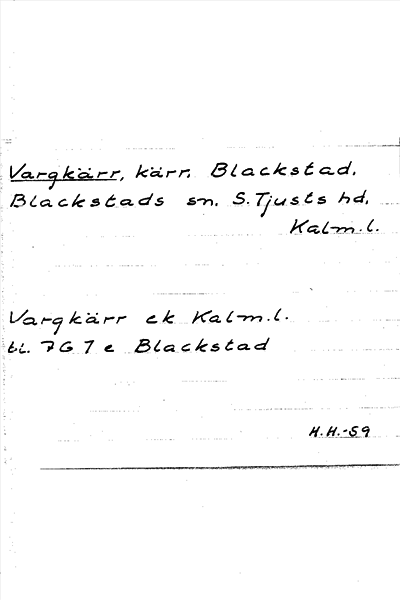 Vargkärr, kärr. Blackstad.
Blackstads sn. S. Tjusts hd.
Kalm.l.
Vargkärr ek Kalm.l.
bl. 7G 7 e Blackstad
H.H.-59